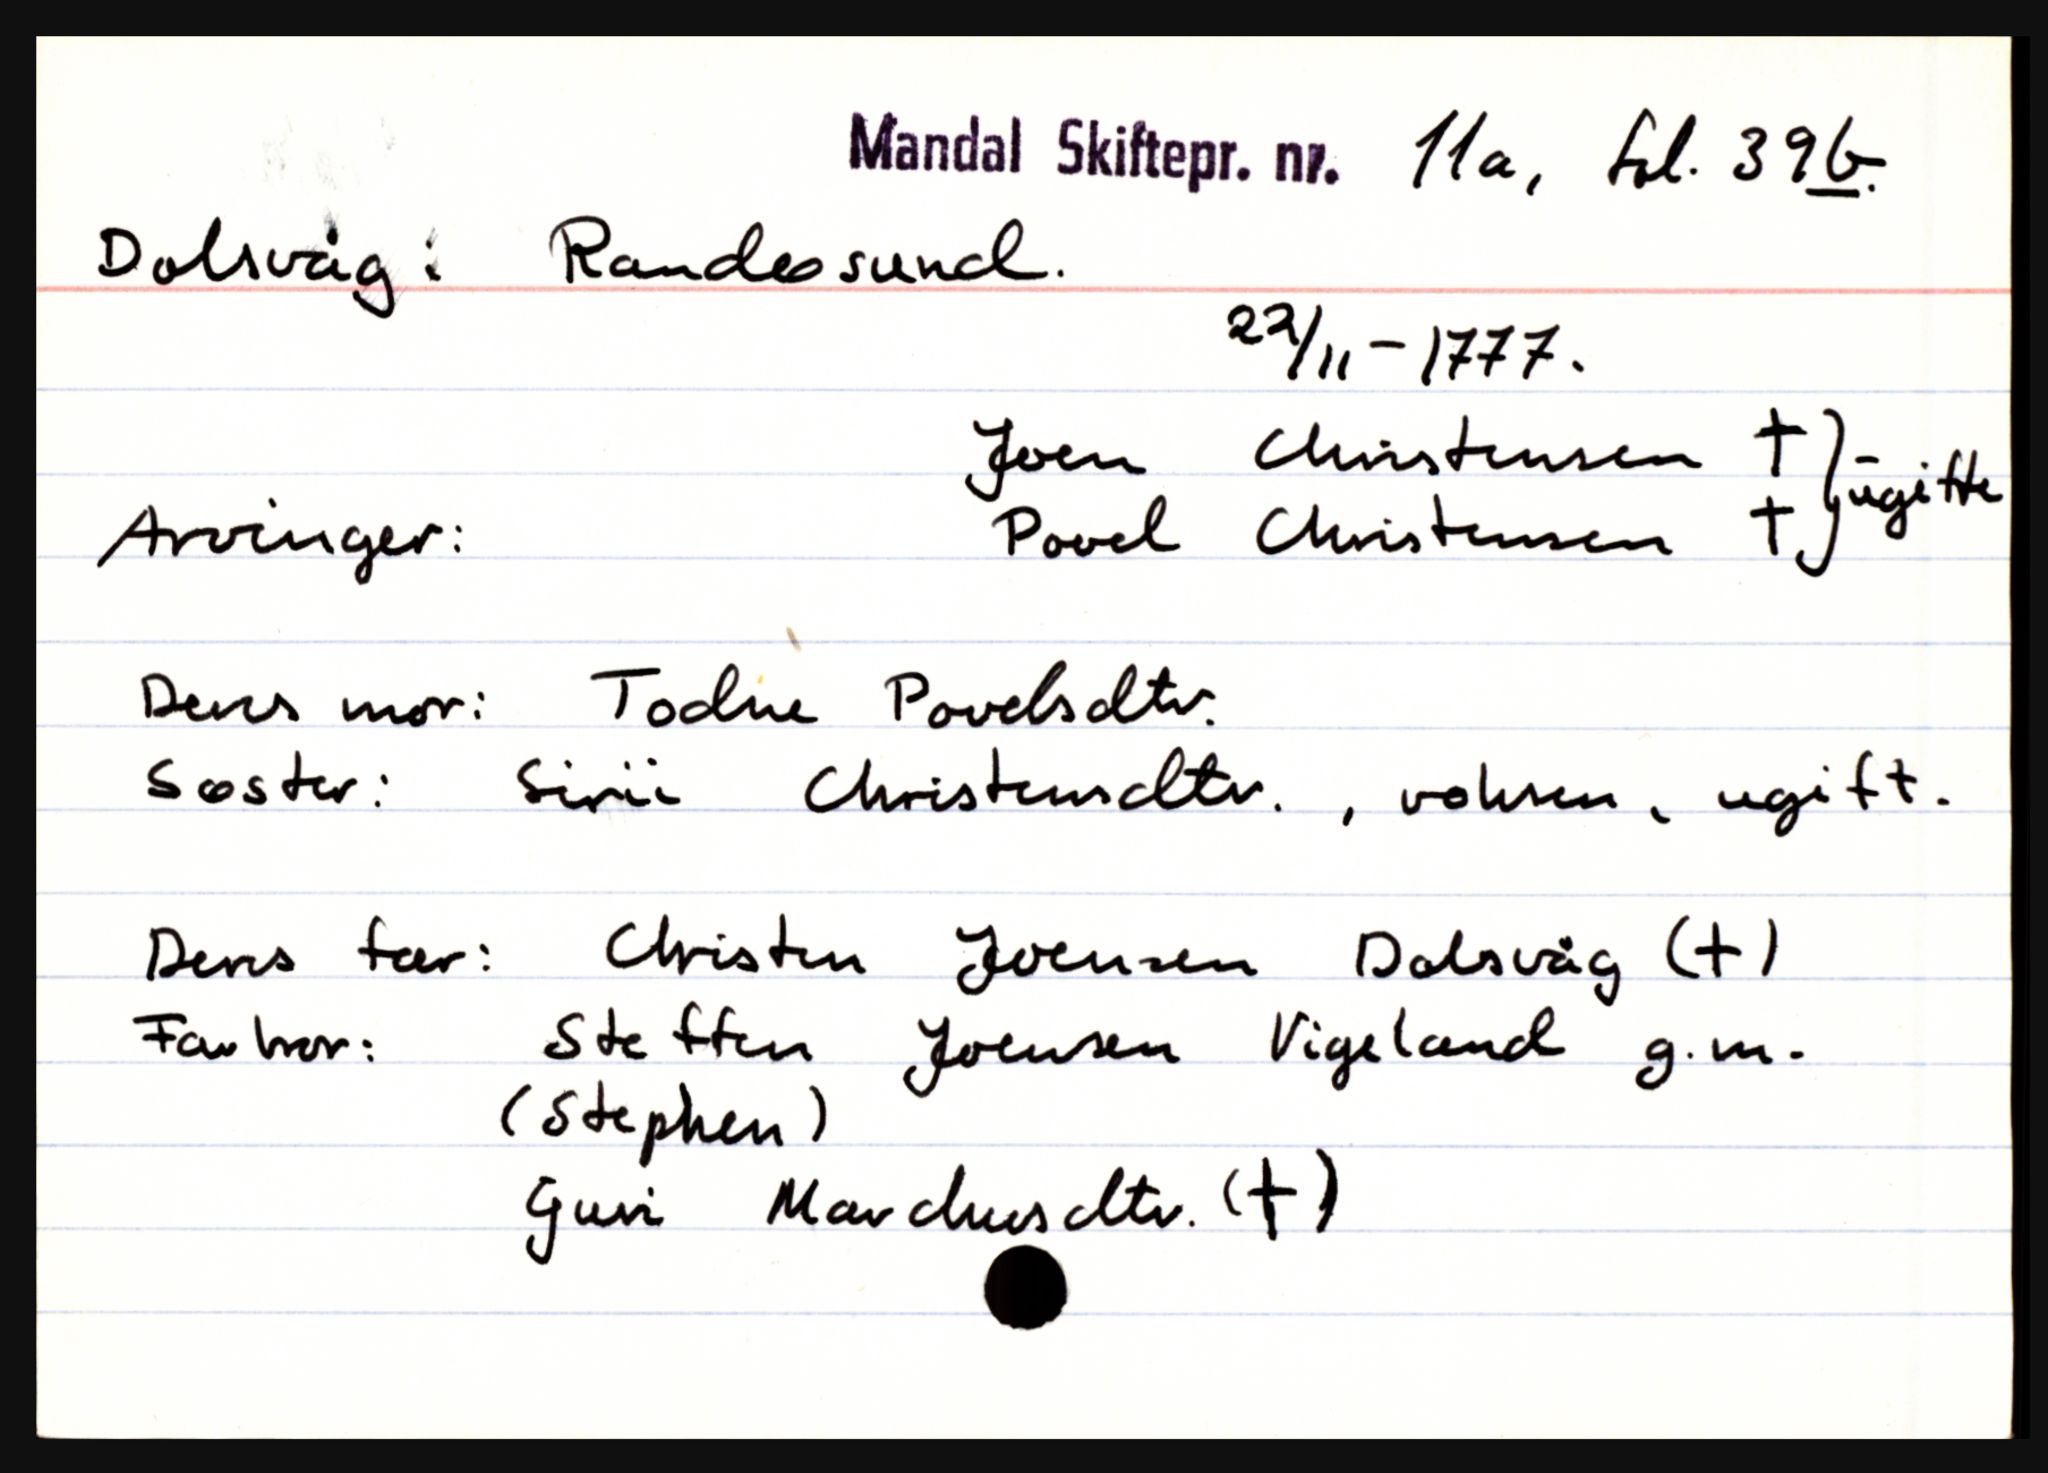 Mandal Skiftepr. nr. 11a, fol. 39b.
Dolsvåg: Randøsund.
22/11-1777.
Joen Christensen † } ugifte
Arvinger: Povel Christensen †
Deres mor: Todne Povelsdtr.
Søster: Sirii Christensdtr., voksen, ugift.
Deres far: Christen Joensen Dolsvåg (†)
Farbror: Steffen Joensen Vigeland g.m.
(Stephen)
Guri Marchusdtr. (†)